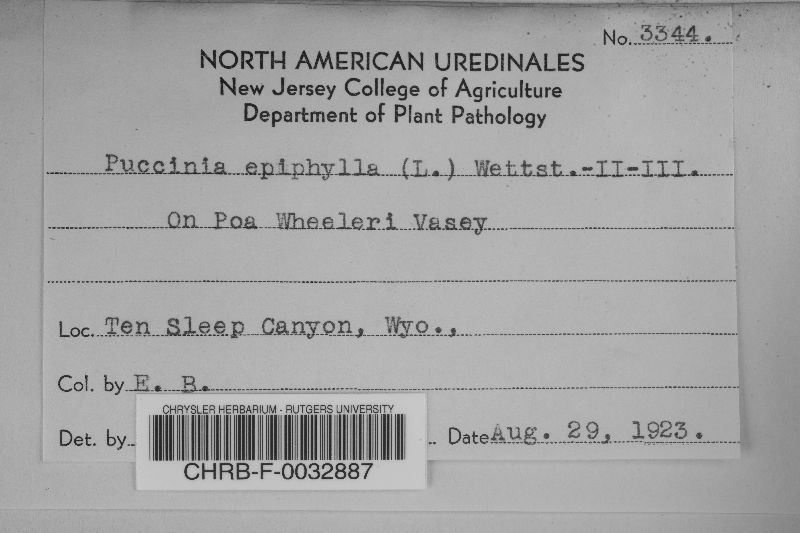 No. 3344.
NORTH AMERICAN UREDINALES
New Jersey College of Agriculture
Department of Plant Pathology
Puccinia epiphylla (L.) Wettst.-II-III.
On Poa Wheeleri Vasey
Loc. Ten Sleep Canyon, Wyo.,
Col. by E. B.
CHRYSLER HERBARIUM - RUTGERS UNIVERSITY
Det. by
Date Aug. 29, 1923.
CHRB-F-0032887